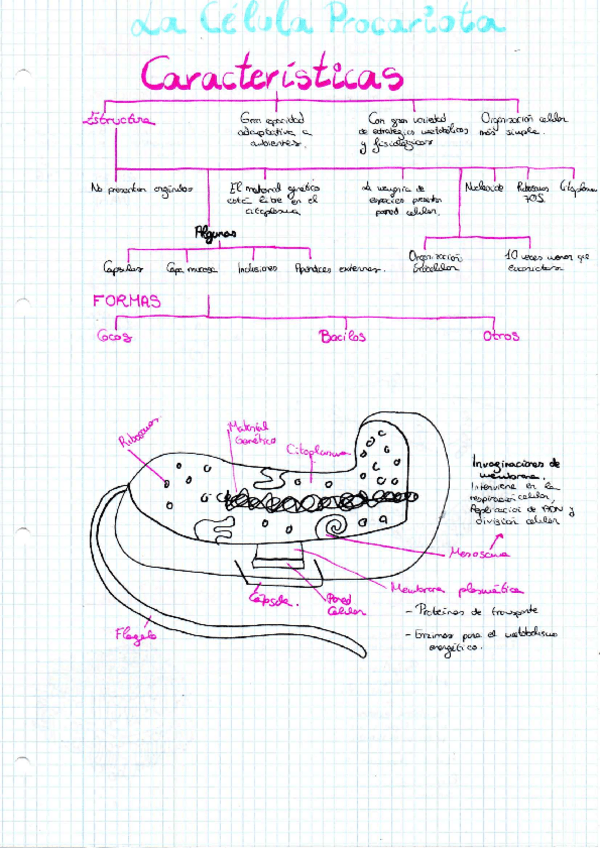 La Célula Procariota
Características
Estructura
Gran capacidad
adaptativa a
ambientes.
Con gran variedad
de estrategias metabólicas
y fisiológicas
Organización celular
más simple.
No presentan orgánulos
El material genético
está libre en el
citoplasma
La mayoría de
especies presentan
pared celular.
Nucleoide
Ribosomas
70S.
Citoplasma
Algunas
Capsulas
Capa mucosa
Inclusiones
Apéndices externos.
Organización
10 veces menor que
eucariotas
FORMAS
Cocos
Bacilos
Otros
Ribosomas
Material
Genético
Citoplasma
Invaginaciones de
membrana.
Interviene en la
respiración celular,
Replicación de ADN y
división celular
Mesosoma
Membrana plasmática
- Proteínas de transporte
- Enzimas para el metabolismo
energético.
Cápsula.
Pared
Celular
Flagelo